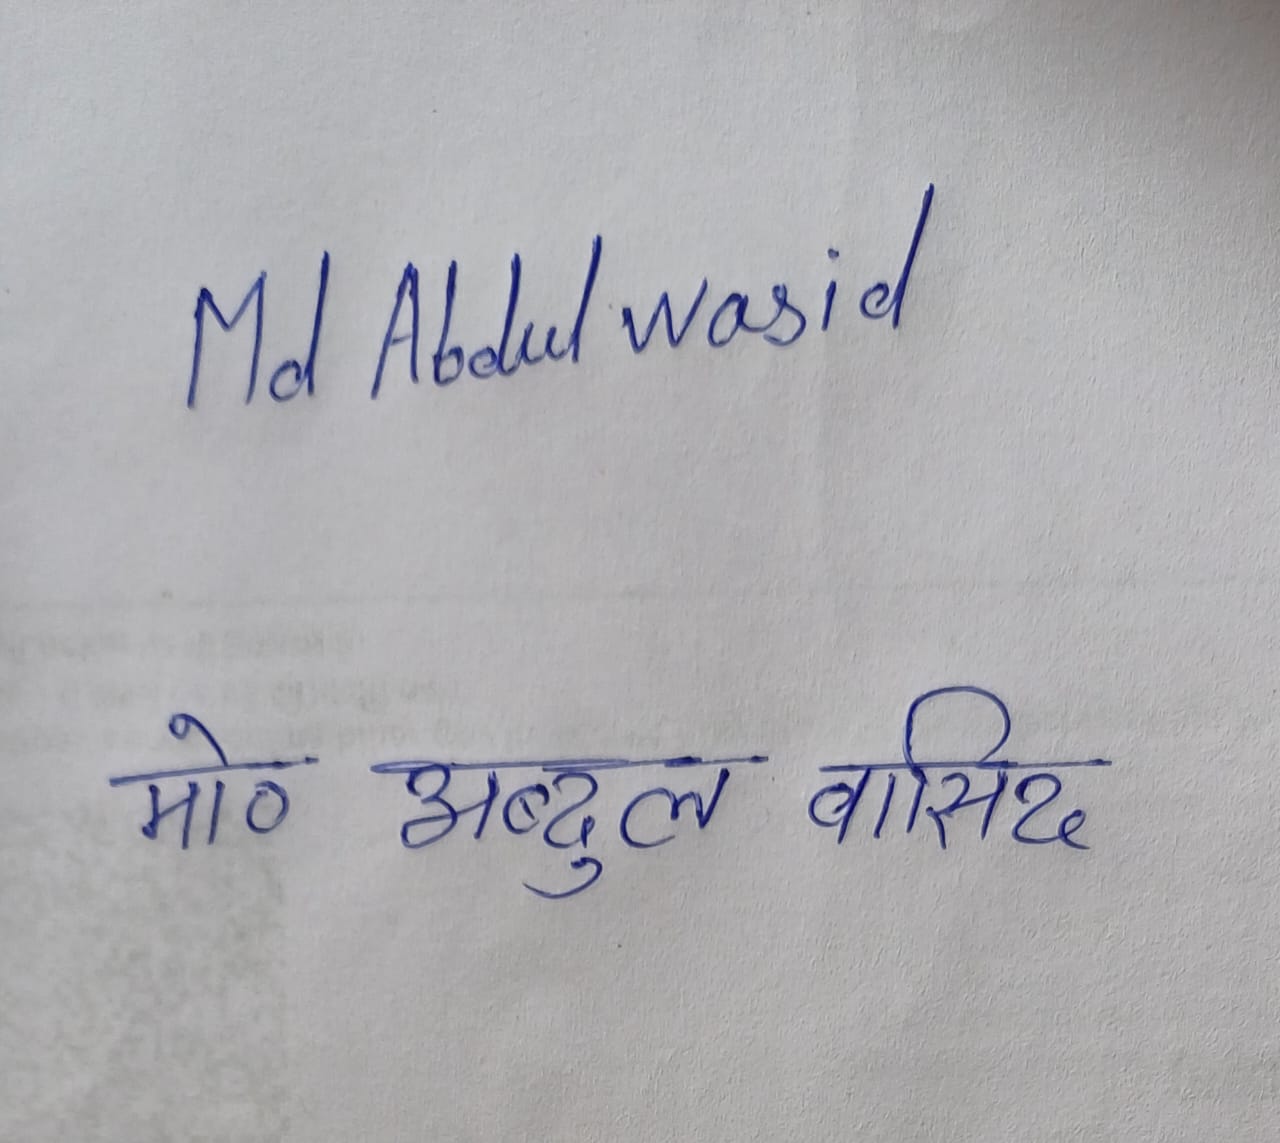 Md Abdul wasid
मो० अब्दुल वासिद